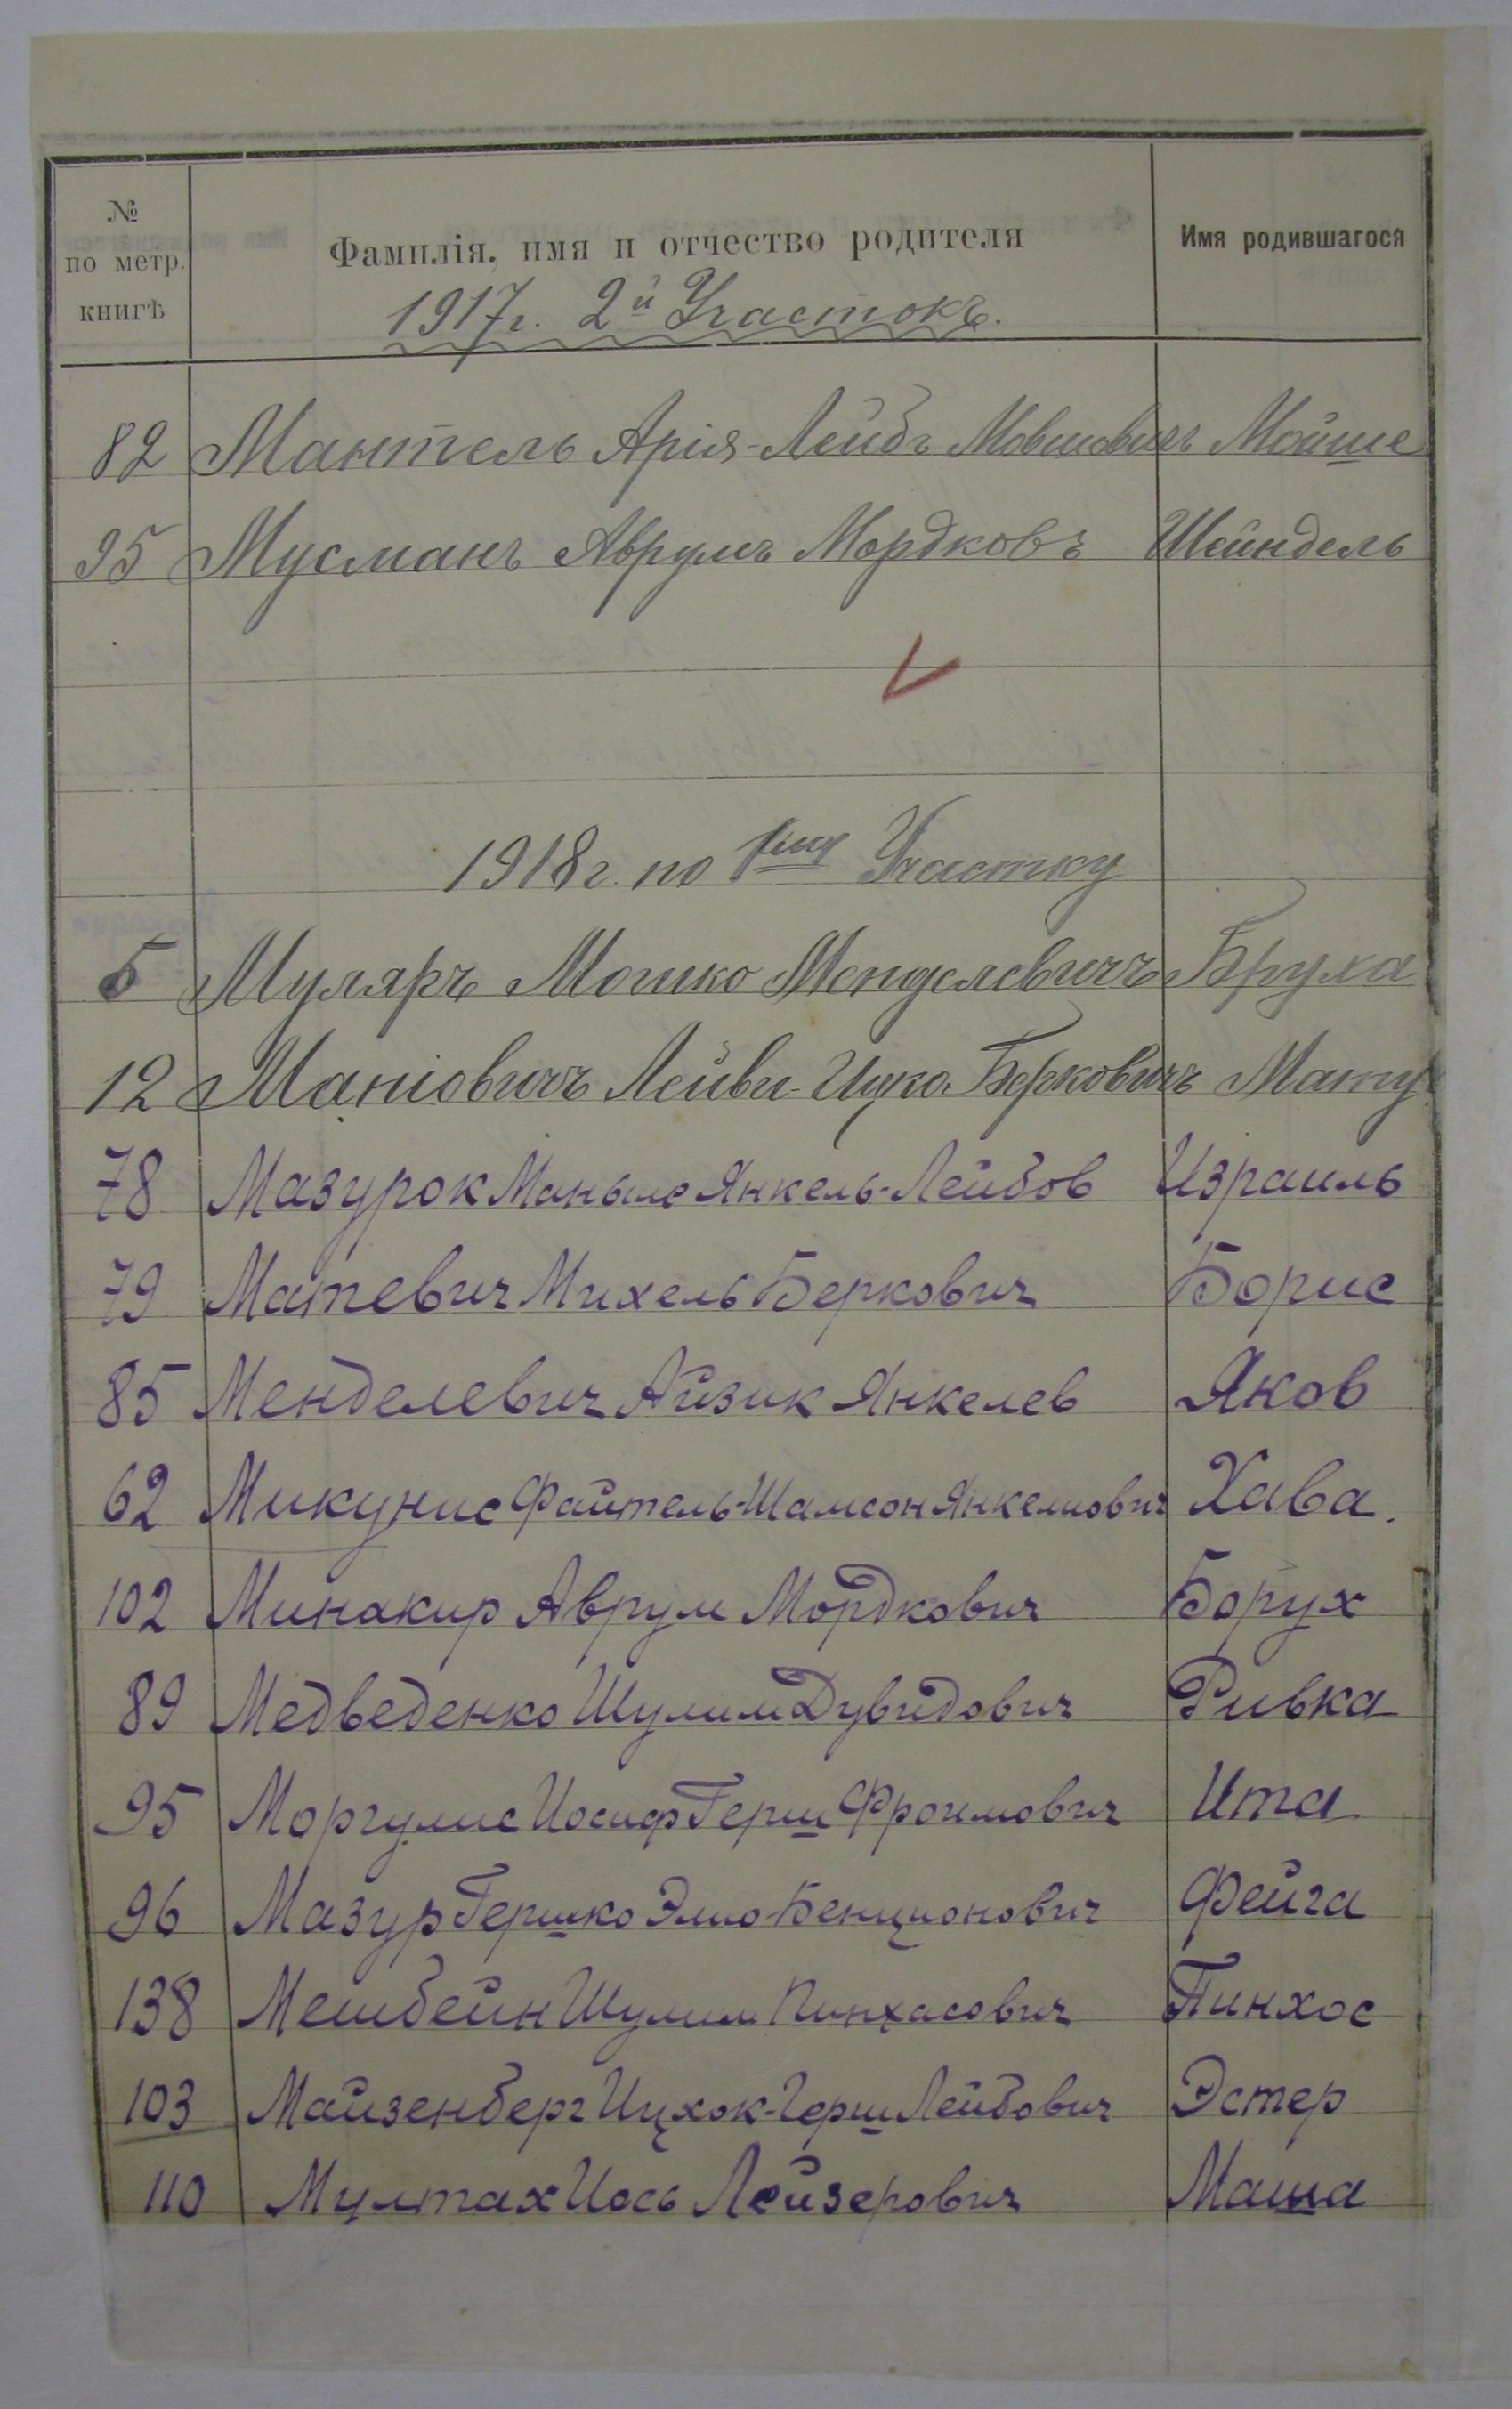 № по метр. книгѣ Фамилія, имя и отчество родителя Имя родившагося
1917г. 2й Участокъ.
82 Мантель Арія-Лейбъ Мовшовичъ Мойше
95 Мусманъ Аврумъ Мордковъ Шейндель
1918г. по 1му Участку
5 Муляръ Мошко Менделевичъ Бруха
12 Маніовичъ Лейви-Ицко Берковичъ
78 Мазурок Маныле Янкель-Лейбов Израиль
79 Матевич Михель Беркович Борис
85 Менделевич Айзик Янкелев Яков
62 Микунис Файтель-Шамсон Янкелиович Хава.
102 Минакир Аврум Мордкович Борух
89 Медведенко Шулим Дувидович Ривка
95 Моргулис Иосиф Герш Фроимович Ита
96 Мазур Гершко Элио-Бенционович Фейга
138 Мешбейн Шулим Пинхасович Пинхос
103 Майзенберг Ицхок-Герш Лейбович Эстер
110 Мултах Иось Лейзерович Маша